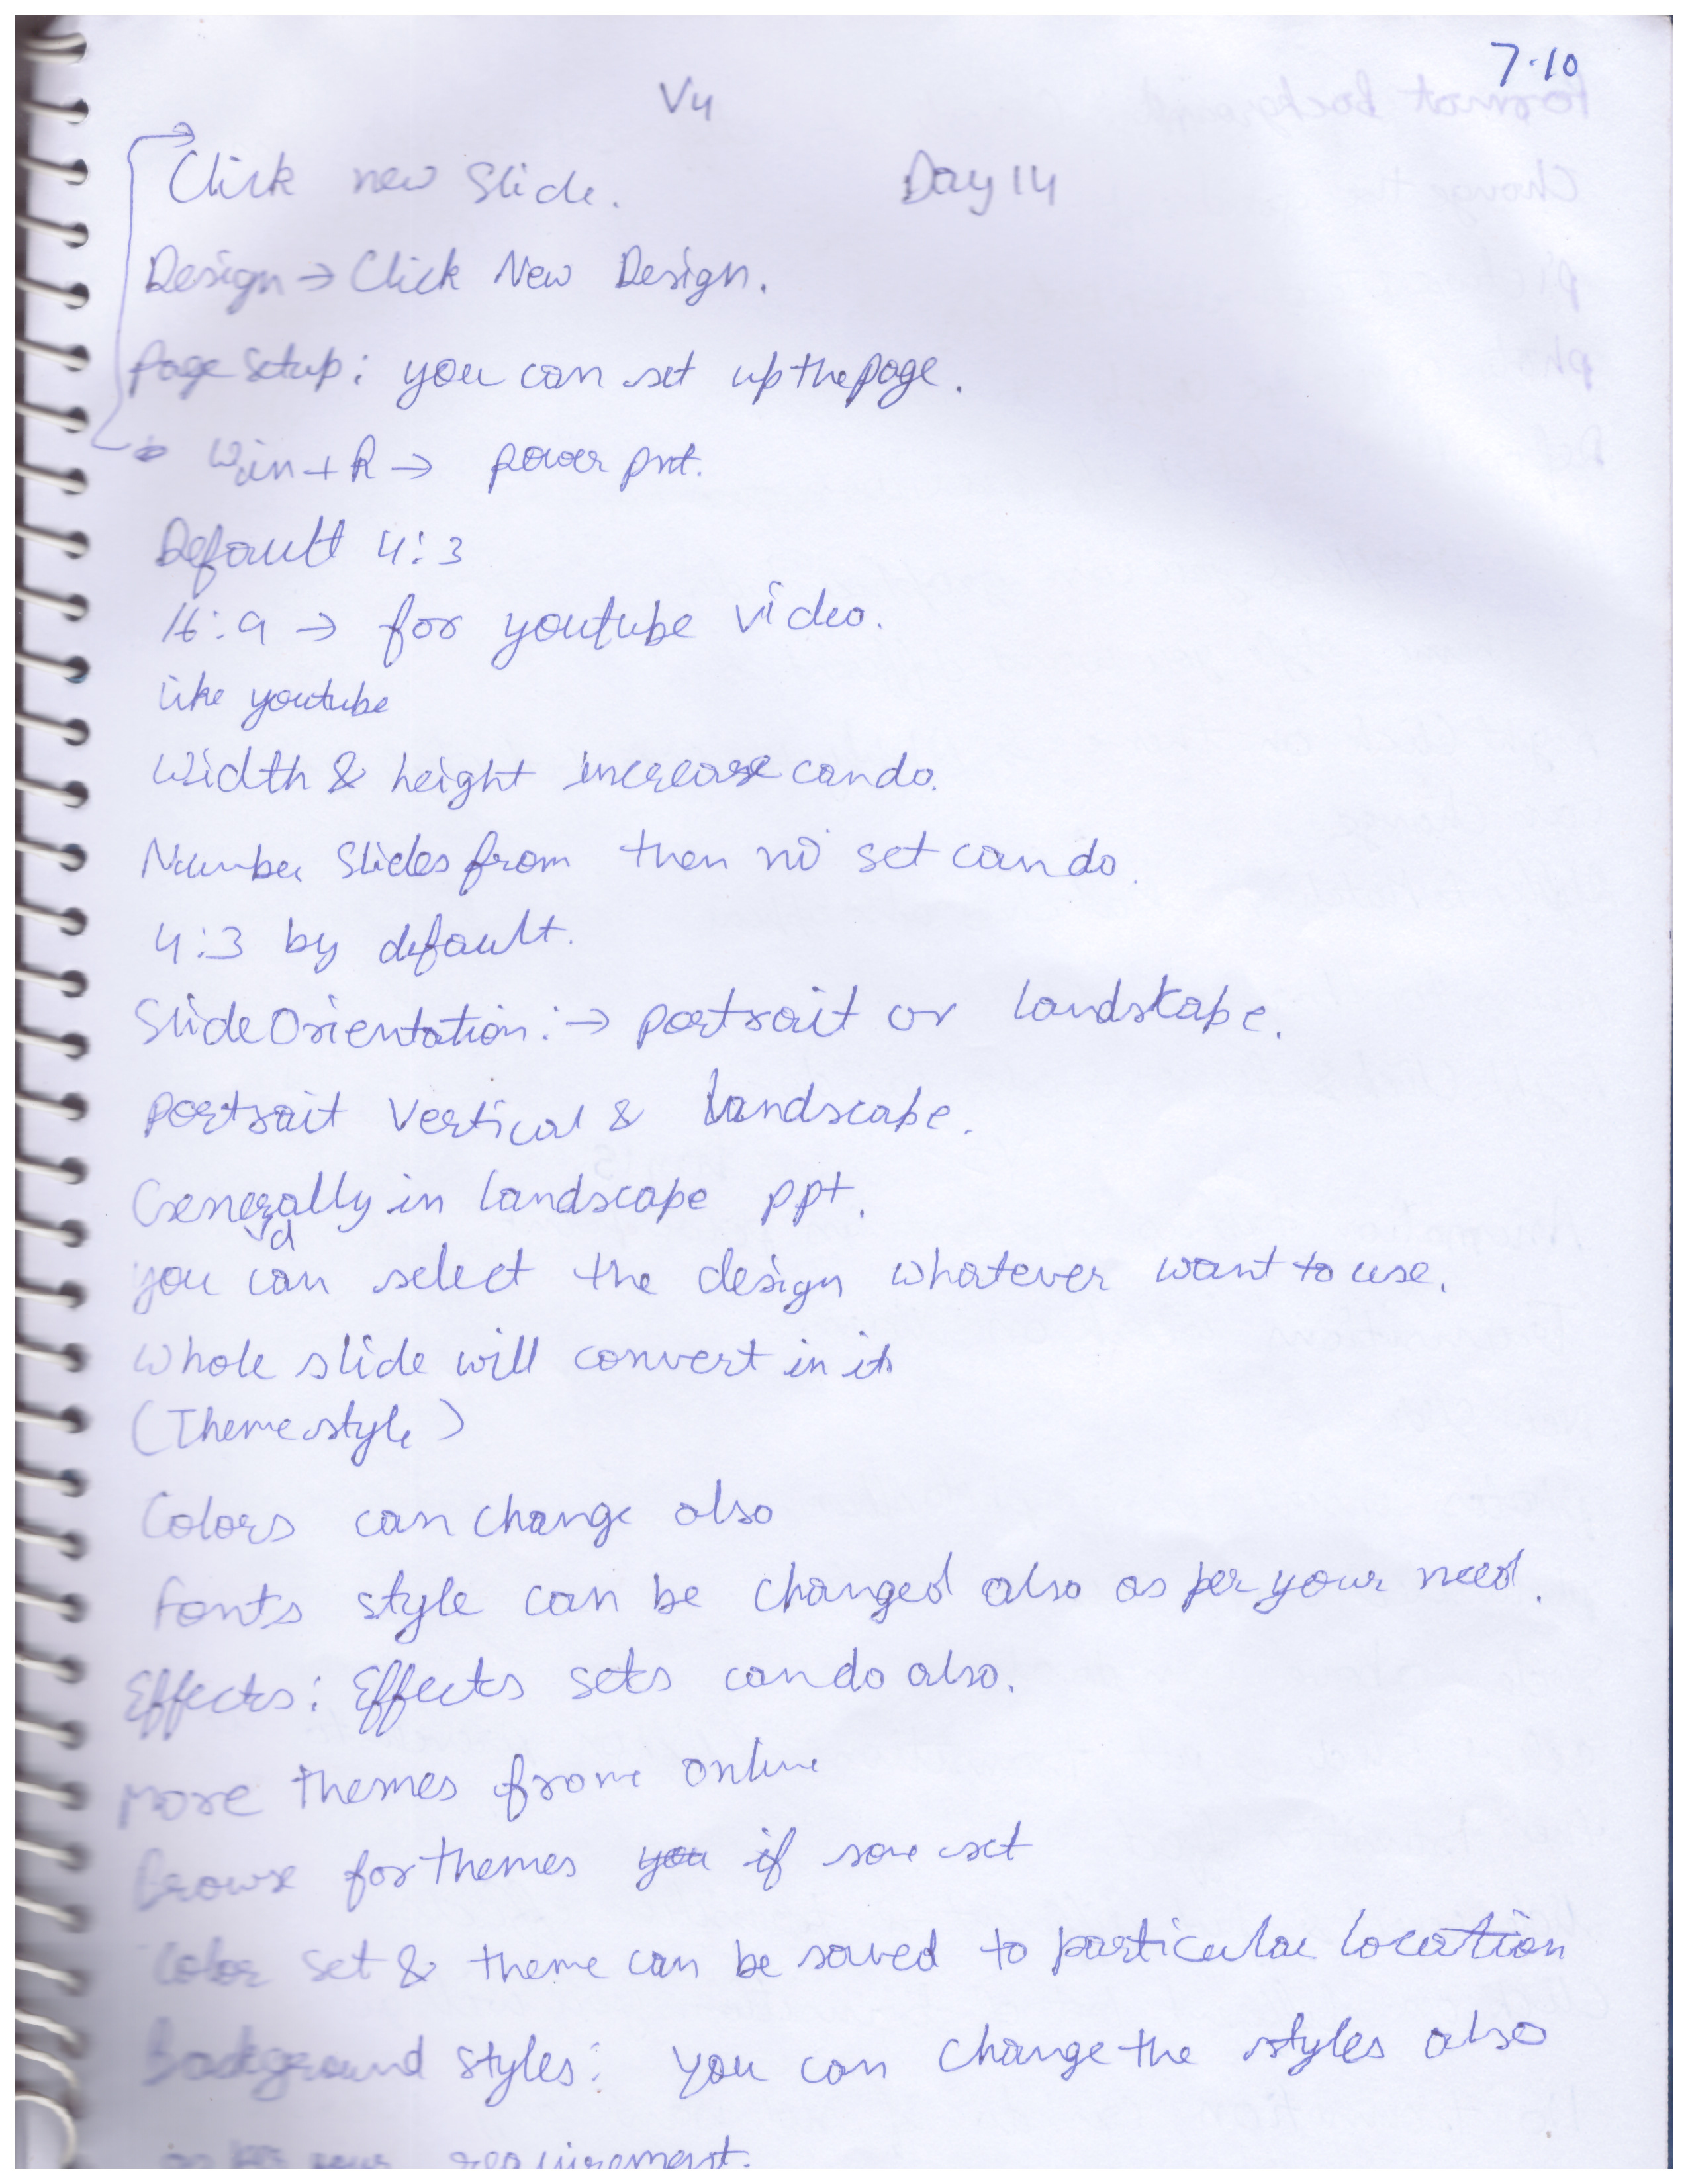 7.10
V4
Click new Slide. Day 14
Design → Click New Design.
Page Setup: you can set up the page.
Win + R → power pnt.
Default 4:3
16:9 → for youtube video.
like youtube
Width & height increase can do.
Number Slides from then no set can do.
4:3 by default.
Slide Orientation: → portrait or landskape.
portrait Vertical & landscape.
Generally in landscape ppt.
you can select the design whatever want to use.
Whole slide will convert in it
(Theme style)
Colors can change also
fonts style can be changed also as per your need.
Effects: Effects sets can do also.
More themes from online
Browse for themes you if save set
Color set & theme can be saved to particular location
Background styles: you can change the styles also
as per your requirement.